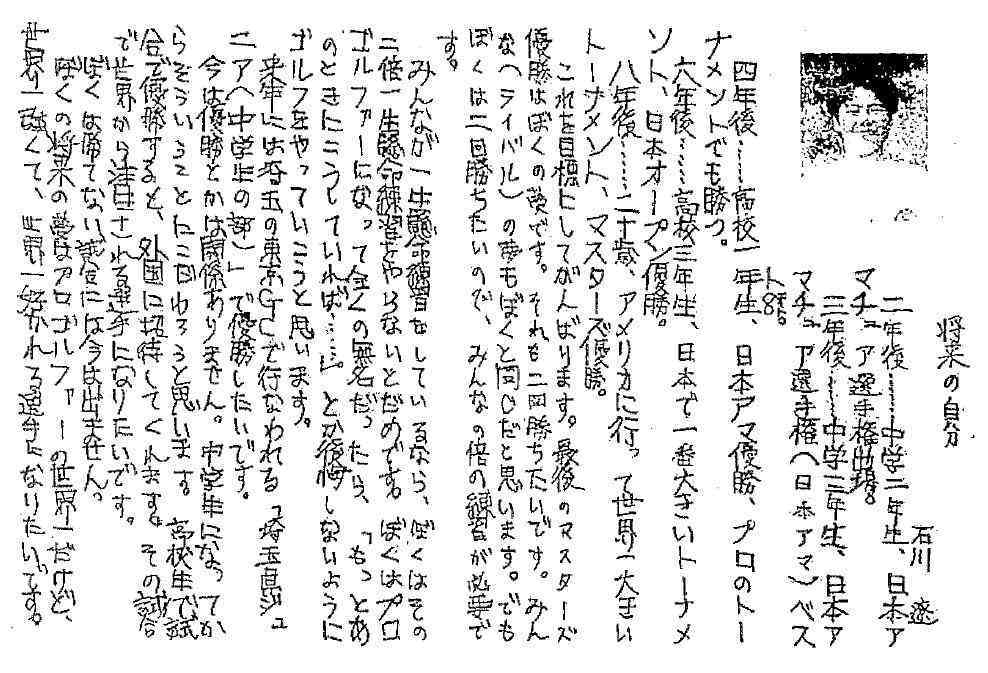 将来の自分
石川 遼
二年後……中学二年生、日本ア
マチュア選手権出場。
三年後……中学三年生、日本ア
マチュア選手権(日本アマ)ベス
ト8。
四年後……高校一年生、日本アマ優勝、プロのトー
ナメントでも勝つ。
六年後……高校三年生、日本で一番大きいトーナメ
ント、日本オープン優勝。
八年後……二十歳、アメリカに行って世界一大きい
トーナメント、マスターズ優勝。
これを目標にしてがんばります。最後のマスターズ
優勝はぼくの夢です。それも二回勝ちたいです。みん
な(ライバル)の夢もぼくと同じだと思います。でも
ぼくは二回勝ちたいので、みんなの倍の練習が必要で
す。
みんなが一生懸命練習をしているなら、ぼくはその
二倍一生懸命練習をやらないとだめです。ぼくはプロ
ゴルファーになって全くの無名だったら、「もっとあ
のときにこうしていれば……」とか後悔しないように
ゴルフをやっていこうと思います。
来年には埼玉の東京GCで行なわれる「埼玉県ジュ
ニア(中学生の部)」で優勝したいです。
今は優勝とかは関係ありません。中学生になってか
らそういうことにこだわろうと思います。高校生で試
合で優勝すると、外国に招待してくれます。その試合
で世界から注目される選手になりたいです。
ぼくは勝てない試合には今は出ません。
ぼくの将来の夢はプロゴルファーの世界一だけど、
世界一強くて、世界一好かれる選手になりたいです。